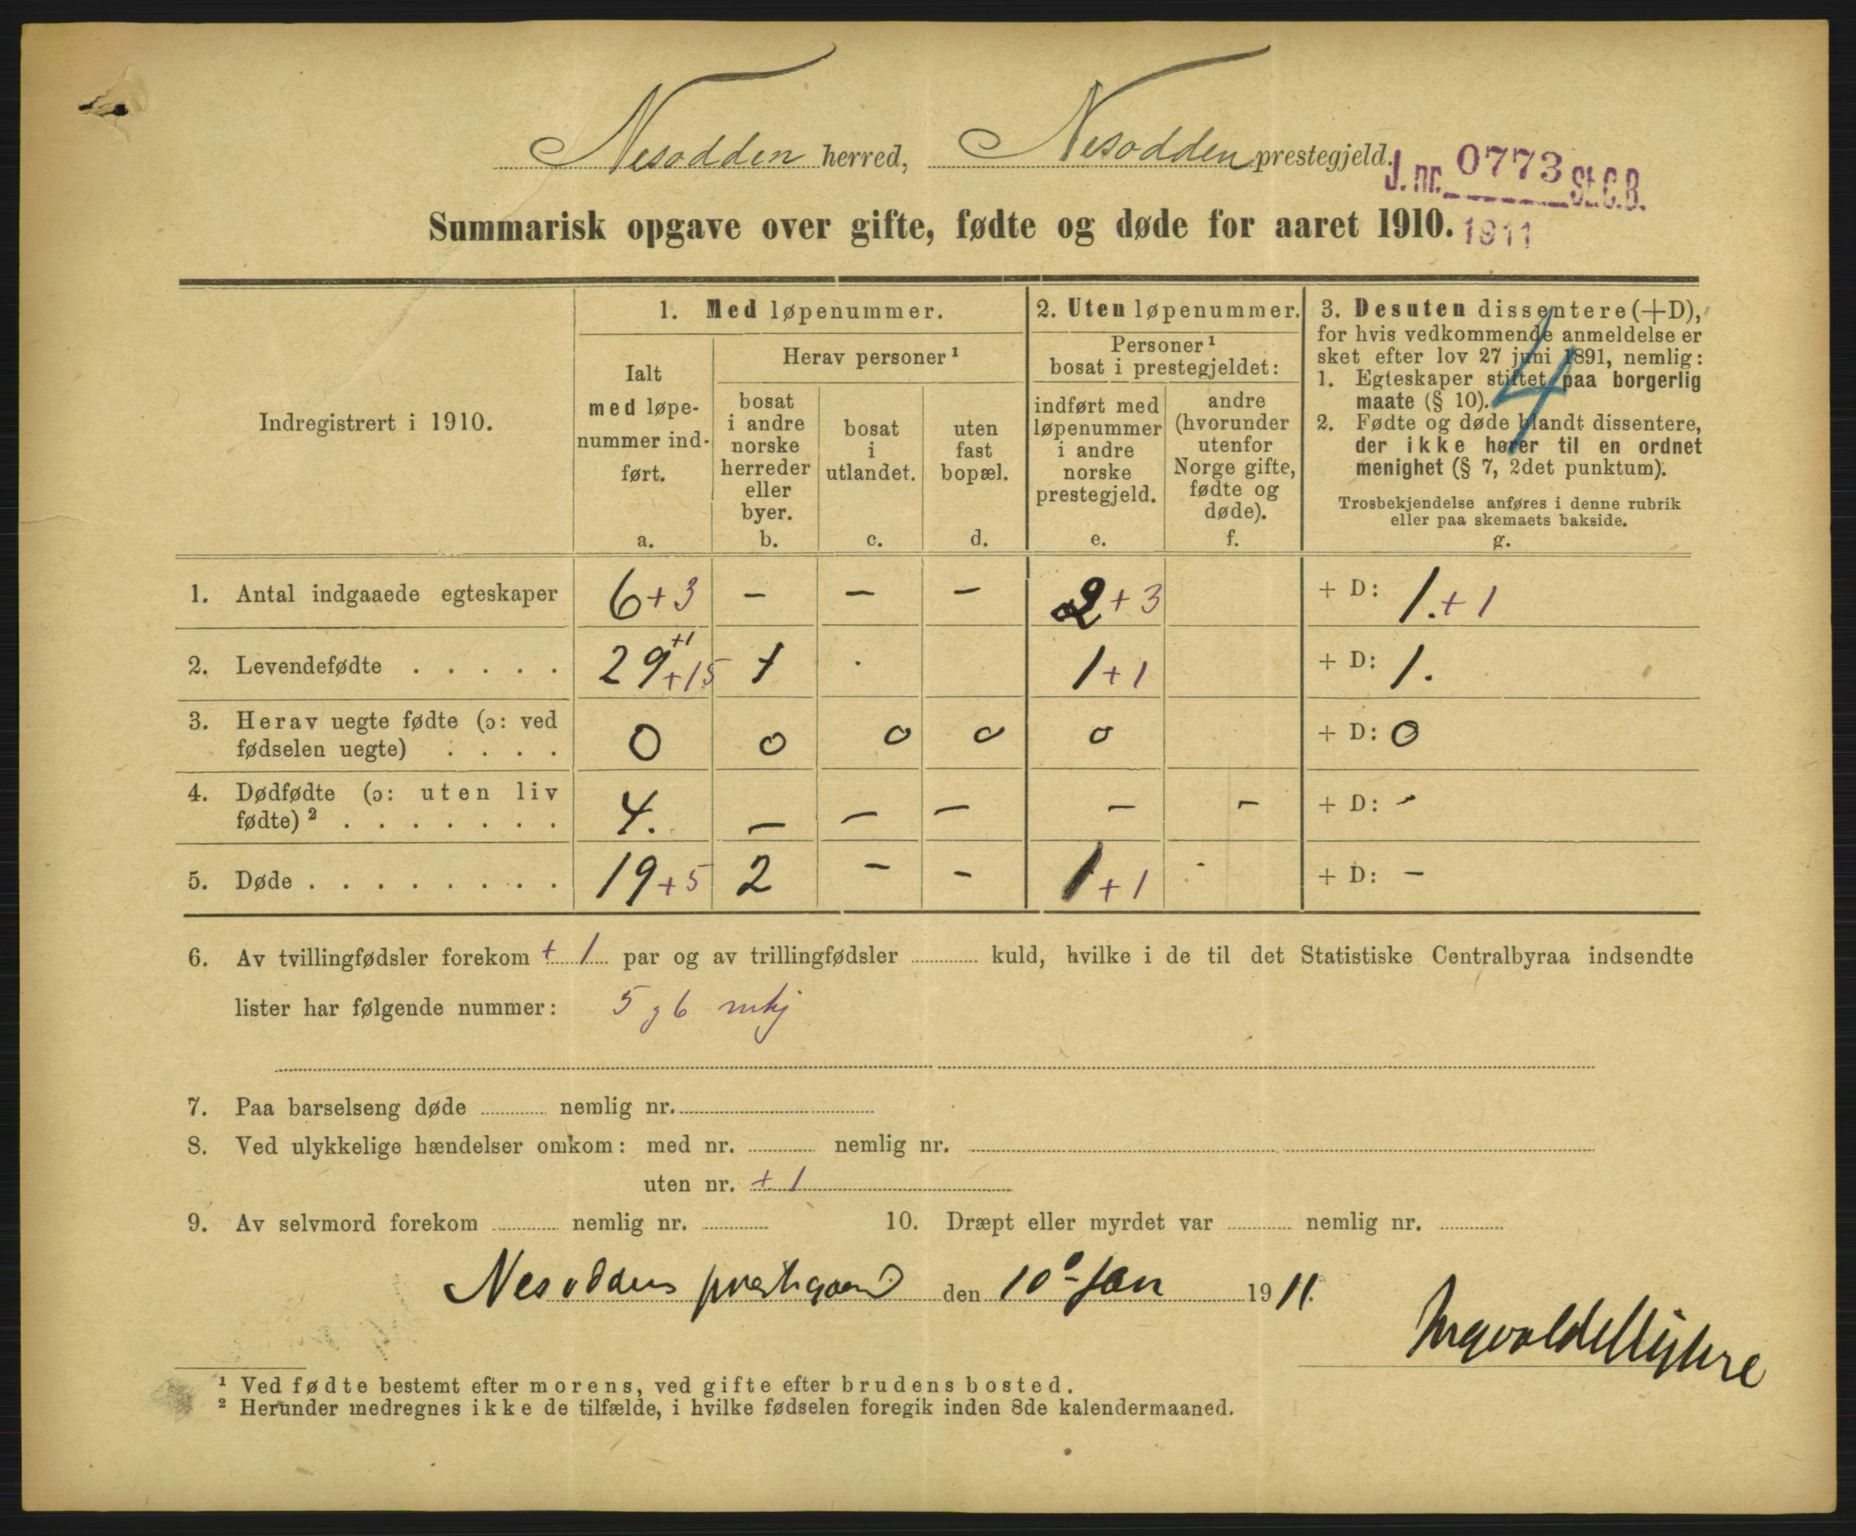 Nesodden herred, Nesodden prestegjeld.
J. nr. 0773 St.C.B.
1911
Summarisk opgave over gifte, fødte og døde for aaret 1910.
Indregistrert i 1910.
1. Med løpenummer.
Ialt med løpe-
nummer ind-
ført.
a.
Herav personer ¹
bosat
i andre
norske
herreder
eller
byer.
b.
bosat
i
utlandet.
c.
uten
fast
bopæl.
d.
2. Uten løpenummer.
Personer ¹
bosat i prestegjeldet:
indført med
løpenummer
i andre
norske
prestegjeld.
e.
andre
(hvorunder
utenfor
Norge gifte,
fødte og
døde).
f.
3. Desuten dissentere (+D),
for hvis vedkommende anmeldelse er
sket efter lov 27 juni 1891, nemlig:
1. Egteskaper stiftet paa borgerlig
maate (§ 10).
2. Fødte og døde blandt dissentere,
der ikke hører til en ordnet
menighet (§ 7, 2det punktum).
Trosbekjendelse anføres i denne rubrik
eller paa skemaets bakside.
g.
4
1. Antal indgaaede egteskaper 6 +3 – – – 2 +3 + D: 1. +1
2. Levendefødte . . . . . 29 +1 +15 1 · 1 +1 + D: 1.
3. Herav uegte fødte (ɔ: ved
fødselen uegte) . . . . 0 0 0 0 0 + D: 0
4. Dødfødte (ɔ: uten liv
fødte) ² . . . . . . . 4. – – – – – + D: –
5. Døde . . . . . . . . 19 +5 2 – – 1 +1 - + D: –
6. Av tvillingfødsler forekom + 1 par og av trillingfødsler ........ kuld, hvilke i de til det Statistiske Centralbyraa indsendte
lister har følgende nummer: 5 g 6 mkj
7. Paa barselseng døde ........ nemlig nr.........
8. Ved ulykkelige hændelser omkom: med nr. ........ nemlig nr. ........
uten nr. + 1
9. Av selvmord forekom ........ nemlig nr. ........ 10. Dræpt eller myrdet var ........ nemlig nr. ........
Nesoddens prestegaard den 10de Jan 1911.
¹ Ved fødte bestemt efter morens, ved gifte efter brudens bosted.
² Herunder medregnes ikke de tilfælde, i hvilke fødselen foregik inden 8de kalendermaaned.